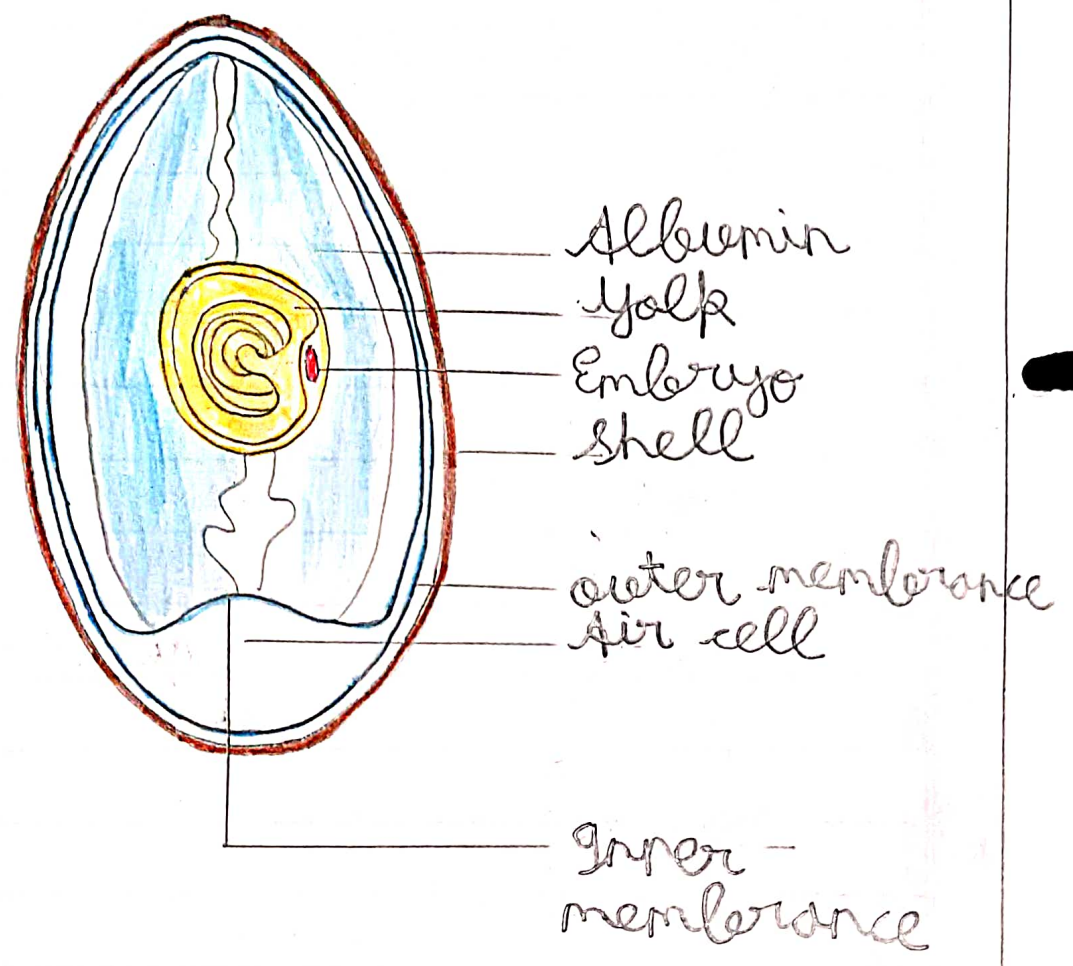 Albumin
Yolk
Embryo
Shell
outer membrance
Air cell
Inner -
membrance